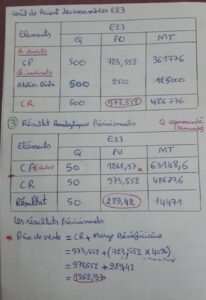 Coût de Revient des ensembles E23
Eléments E23
Q PU MT
Ch directes
CP 500 723,552 361776
Ch indirectes
Atelier Distr 500 250 125000
CR 500 973,552 486776
③ Résultat Analytique Prévisionnels
Q (
Eléments E23
Q PU MT
CA 50 1262,97 63148,6
CR 50 973,552 48677,6
Résultat 50 289,42 14471
Les résultats prévisionnels
* Prix de vente = CR + Marge Bénéficiaire
= 973,552 + (723,552 x 40%)
= 973,552 + 289,42
= 1262,97